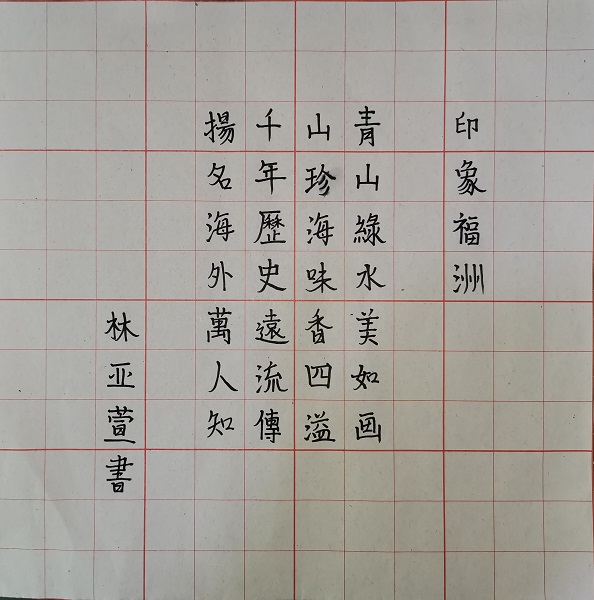 印象福洲
青山綠水美如画
山珍海味香四溢
千年歷史遠流傳
揚名海外萬人知
林亚萱書